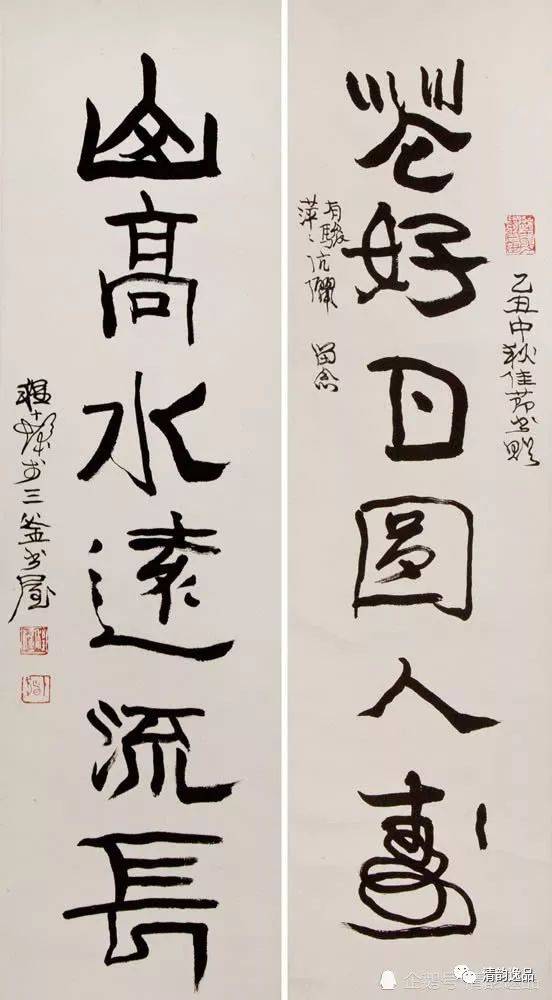 乙丑中秋佳節書贈
花好月圓人壽
有駿
萍萍伉儷 留念
山高水遠流長
程十髮於三釜書屋
企鹅号
清韵逸品